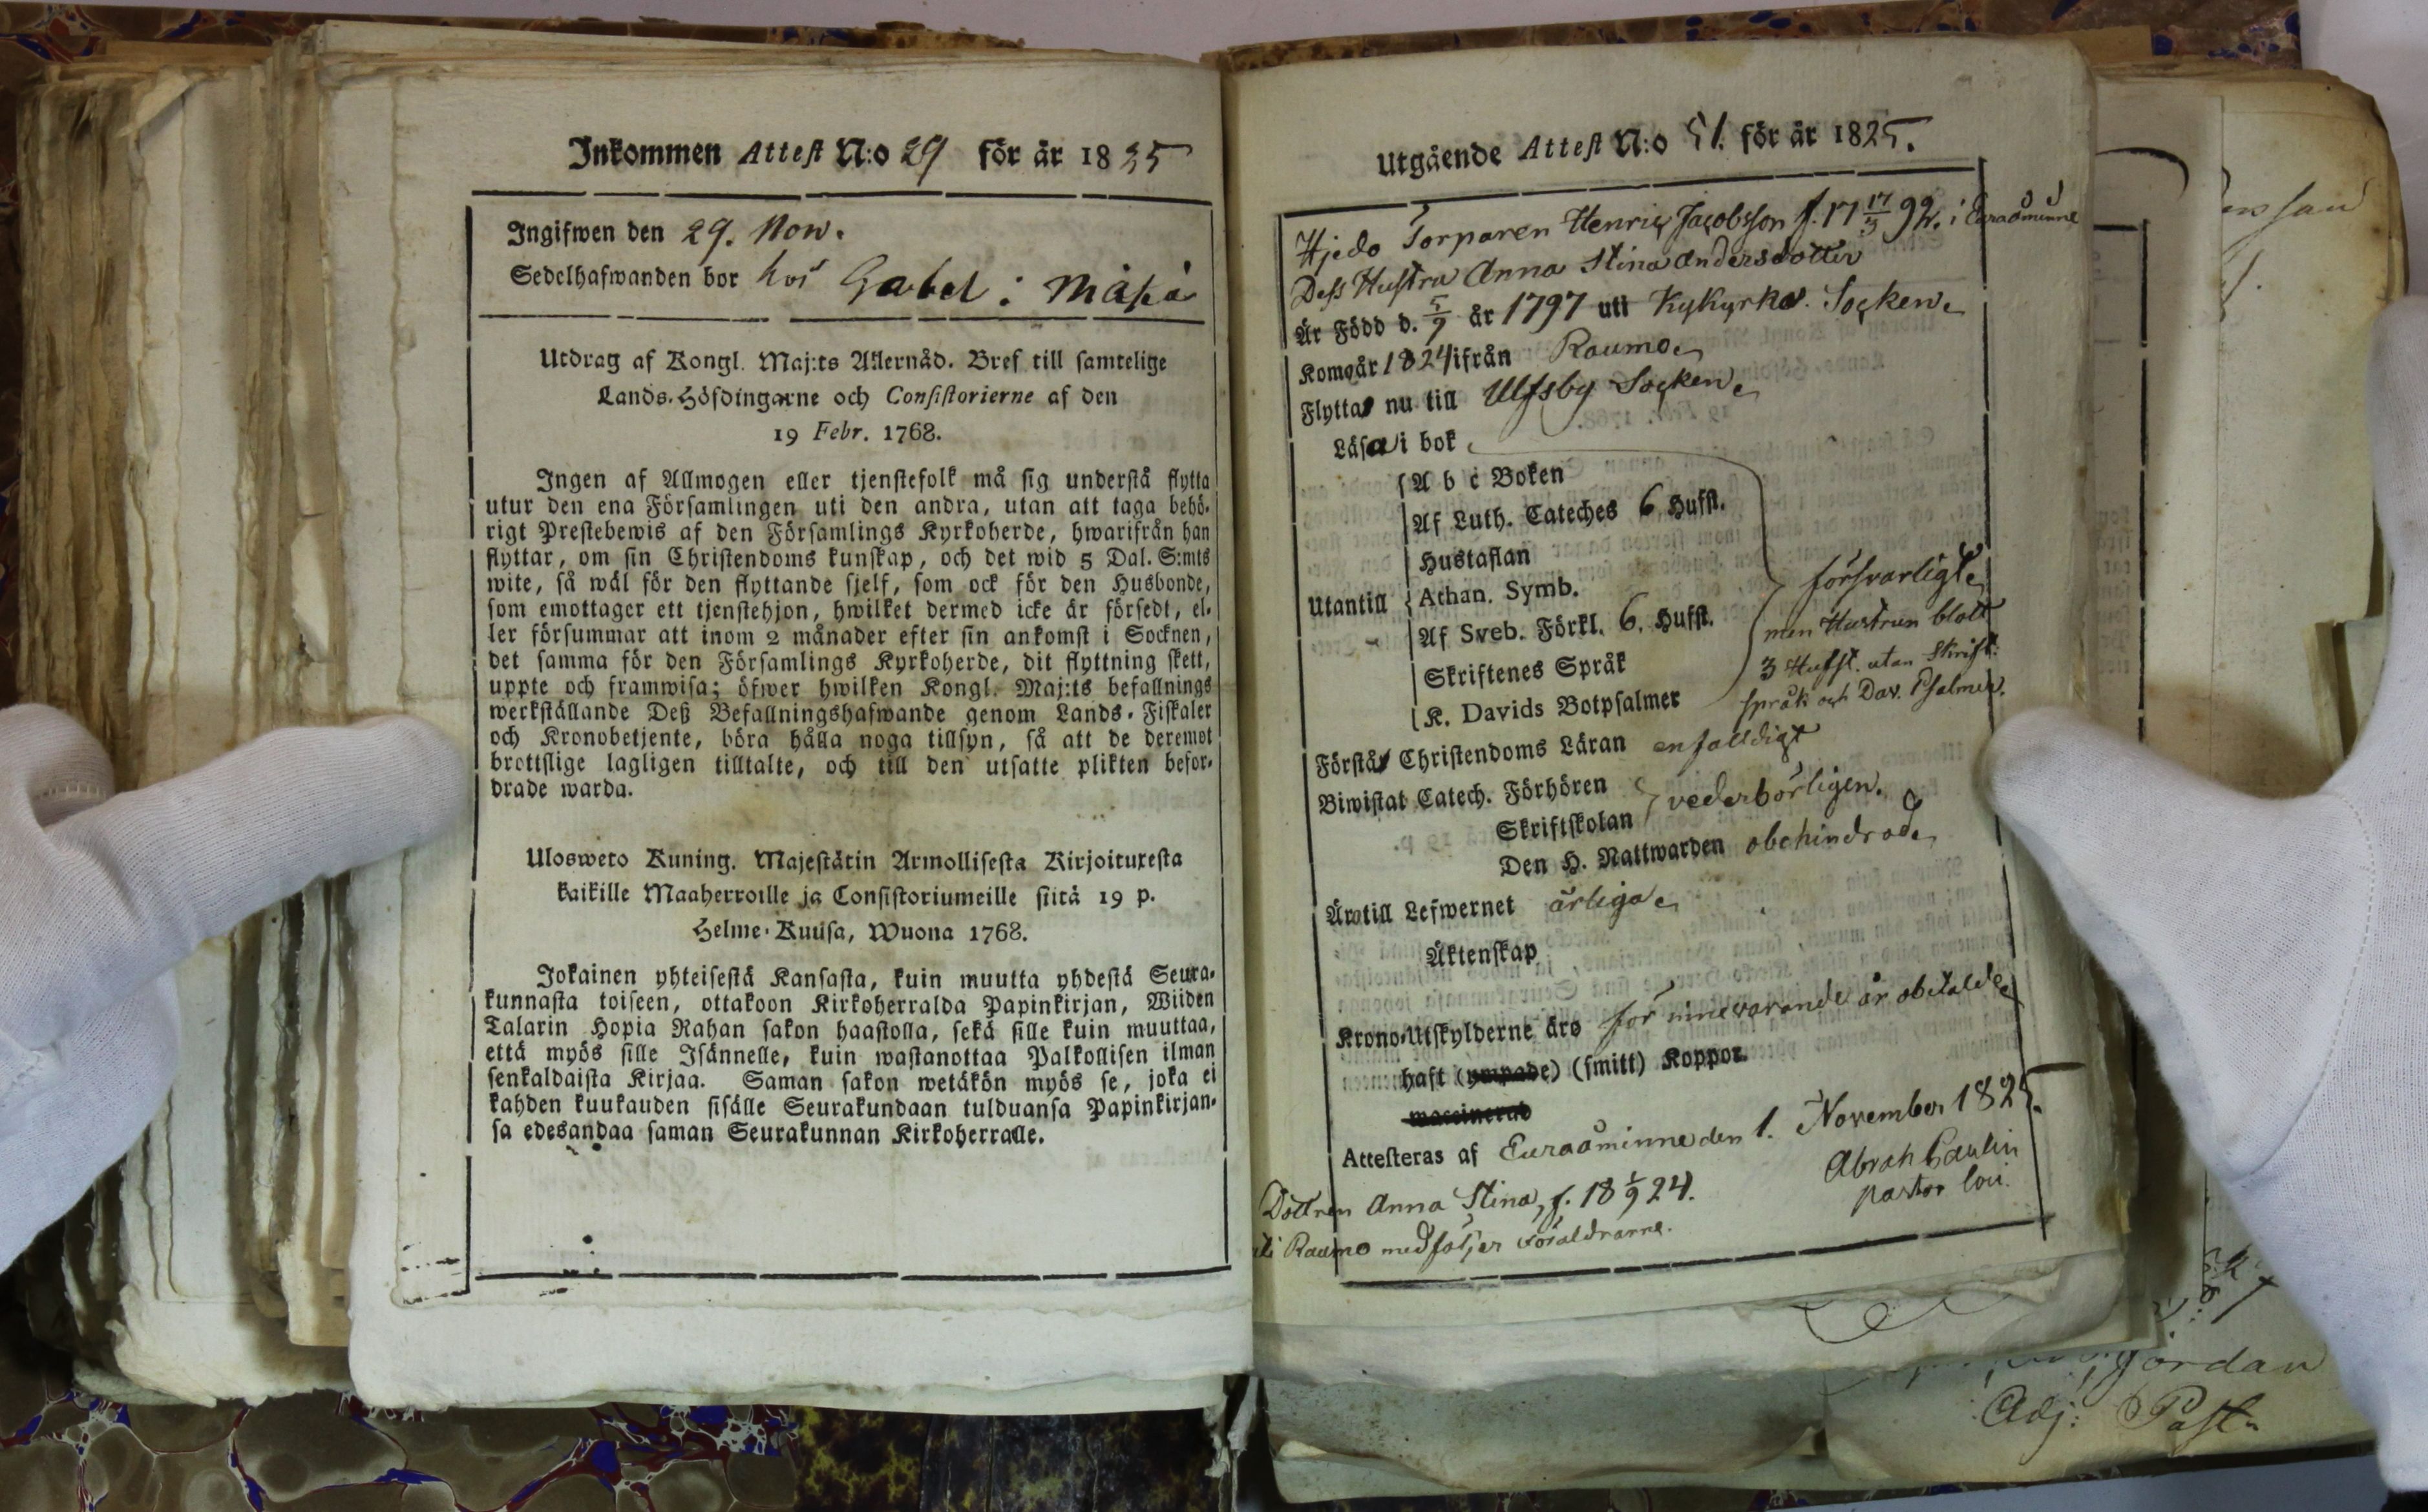 Inkommen Attest N:o 29 för år 1825
Ingifwen den 29. Nov.
Sedelhafwanden bor hos Gabel: Mäkä
Utdrag af Kongl. Maj:ts Allernåd. Bref till samtelige
Lands-Höfdingarne och Consistorierne af den
19 Febr. 1768.
Ingen af Allmogen eller tjenstefolk må sig understå flytta
utur den ena Församlingen uti den andra, utan att taga behö-
rigt Prestebewis af den Församlings Kyrkoherde, hwarifrån han
flyttar, om sin Christendoms kunskap, och det wid 5 Dal. S:mts
wite, så wäl för den flyttande sjelf, som ock för den Husbonde,
som emottager ett tjenstehjon, hwilket dermed icke är försedt, el-
ler försummar att inom 2 månader efter sin ankomst i Socknen,
det samma för den Församlings Kyrkoherde, dit flyttning skett,
uppte och framwisa; öfwer hwilken Kongl. Maj:ts befallnings
werkställande Deß Befallningshafwande genom Lands-Fiskaler
och Kronobetjente, böra hålla noga tillsyn, så att de deremot
brottslige lagligen tilltalte, och till den utsatte plikten befor-
drade warda.
Ulosweto Kuning. Majestätin Armollisesta Kirjoituxesta
kaikille Maaherroille ja Consistoriumeille siitä 19 p.
Helme-Kuusa, Wuona 1768.
Jokainen yhteisestä Kansasta, kuin muutta yhdestä Seura-
kunnasta toiseen, ottakoon Kirkoherralda Papinkirjan, Wiiden
Talarin Hopia Rahan sakon haastolla, sekä sille kuin muuttaa,
että myös sille Isännelle, kuin wastanottaa Palkollisen ilman
senkaldaista Kirjaa. Saman sakon wetäkön myös se, joka ei
kahden kuukauden sisälle Seurakundaan tulduansa Papinkirjan-
sa edesandaa saman Seurakunnan Kirkoherralle.
Utgående Attest N:o 51. för år 1825.
Hjedo Torparen Henric Jacobsson f. 17 17/3 92. i Euraåminne
Dess Hustru Anna Stina Andersdotter
Är Född d. 5/9 år 1797 uti Kykyrka Socken
Kom år 1824 ifrån Raumo
Flytta nu till Ulfsby Socken
Läsa i bok
A b c Boken
Af Luth. Cateches 6 Hufst.
Hustaflan
Utantill Athan. Symb. försvarligt
Af Sveb. Förkl. 6. Hufst. men Hustrun blott
Skriftenes Språk 3 Hufst. utan Skrift:
K. Davids Botpsalmer språk och Dav. Psalmer.
Förstå Christendoms Läran enfalldigt
Biwistat Catech. Förhören vederbörligen.
Skriftskolan
Den H. Nattwarden obehindrade
Äro till Lefwernet ärliga
Äktenskap
Krono-Utskylderne äro för innevarande år obetalde
haft (ympade) (smitt) Koppor
waccinerad
Attesteras af Euraåminne den 1. November 1825.
Abrah Paulin
pastor loci.
Dottren Anna Stina, f. 18 1/9 24.
i Raumo medföljer föräldrarne.
jordan
Adj: Past